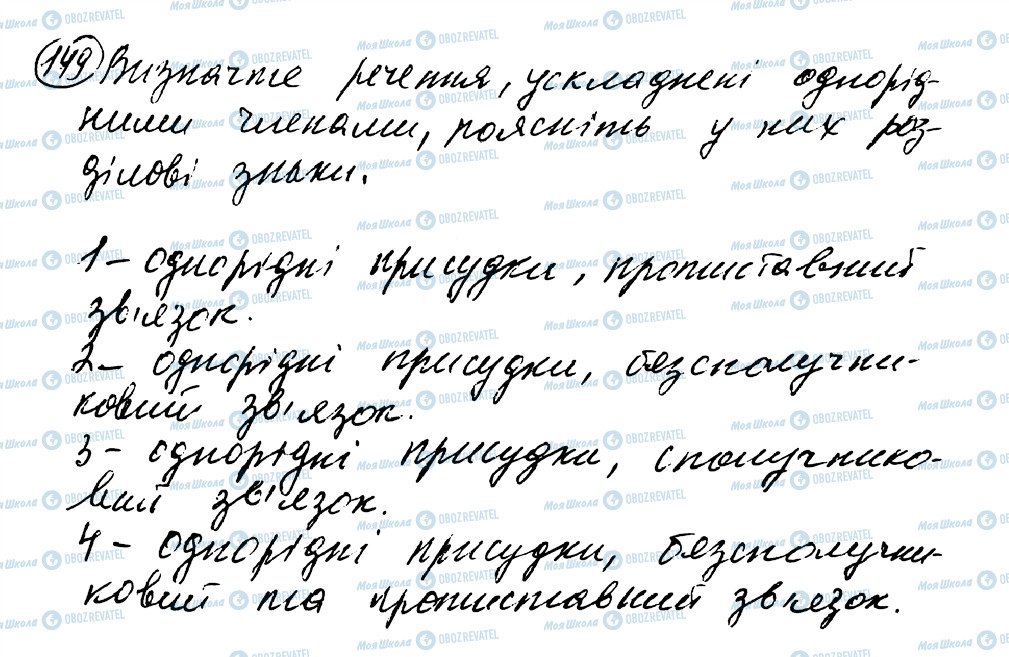 149 Визначте речення, ускладнені однорід-
ними членами, поясніть у них роз-
ділові знаки.
1 - однорідні присудки, протиставний
зв'язок.
2 - однорідні присудки, безсполучни-
ковий зв'язок.
3 - однорідні присудки, сполучнико-
вий зв'язок.
4 - однорідні присудки, безсполучни-
ковий та протиставний зв'язок.
МояШкола OBOZREVATEL